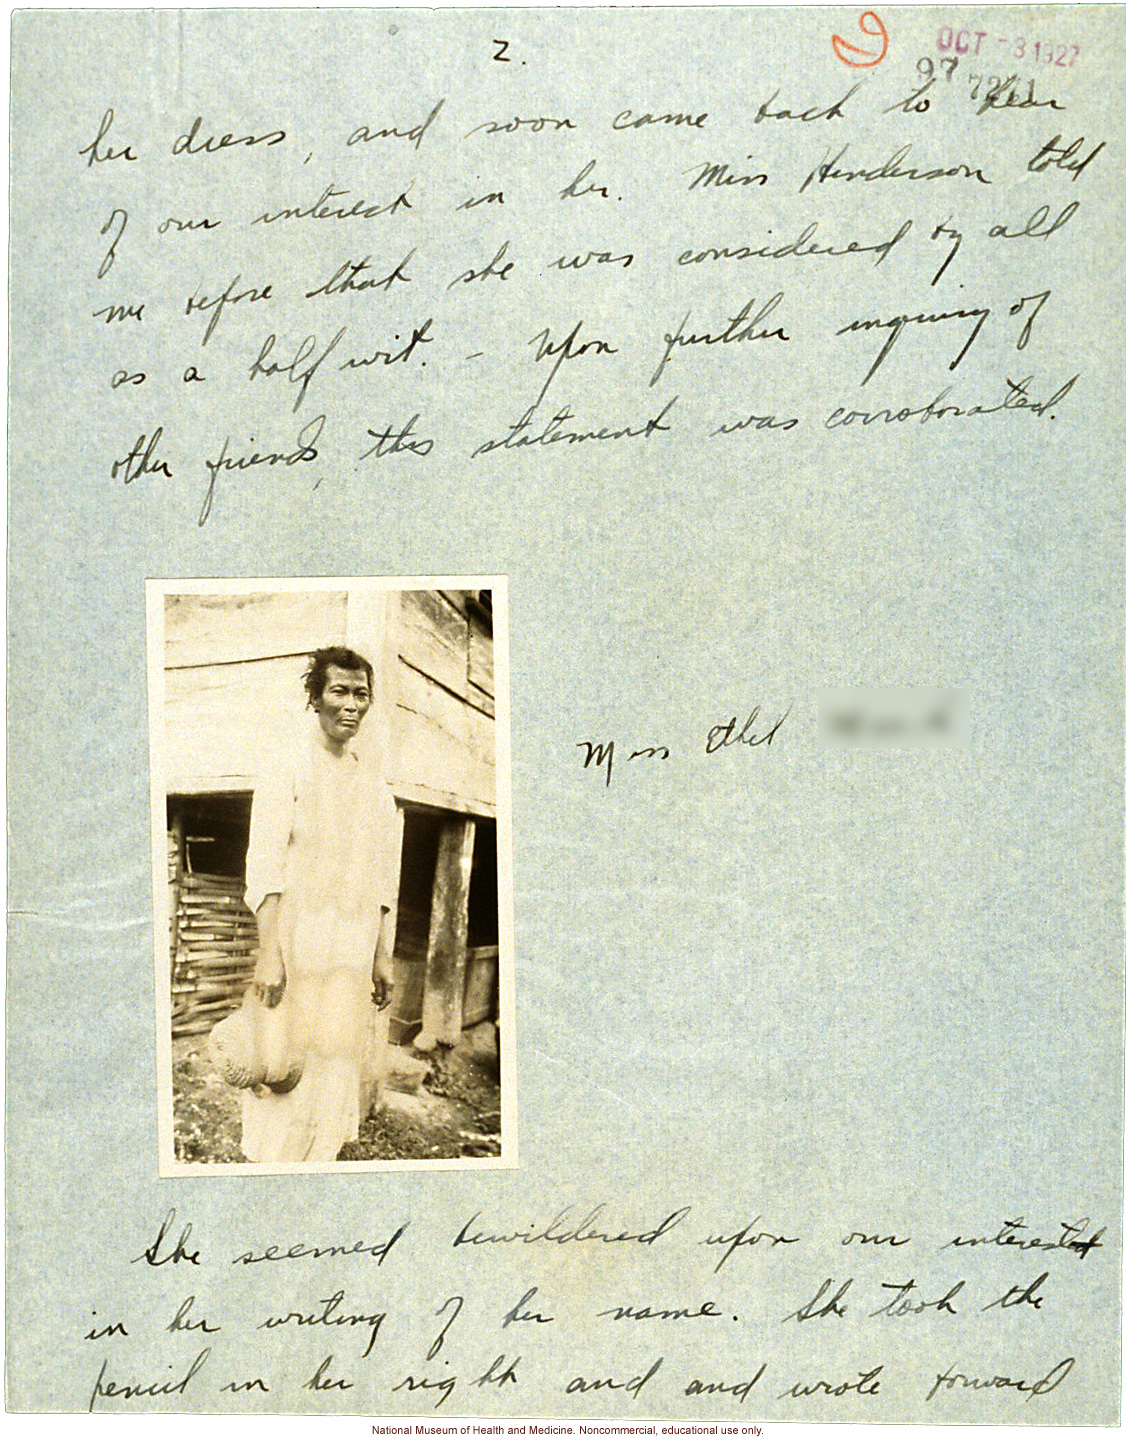 2.
OCT - 3 1927
97
her dress, and soon came back to hear
of our interest in her. Miss Henderson told
me before that she was considered by all
as a half wit. - Upon further inquiry of
other friends, this statement was corroborated.
Miss Ethel
She seemed bewildered upon our interest
in her writing of her name. She took the
pencil in her right and and wrote forward
National Museum of Health and Medicine. Noncommercial, educational use only.